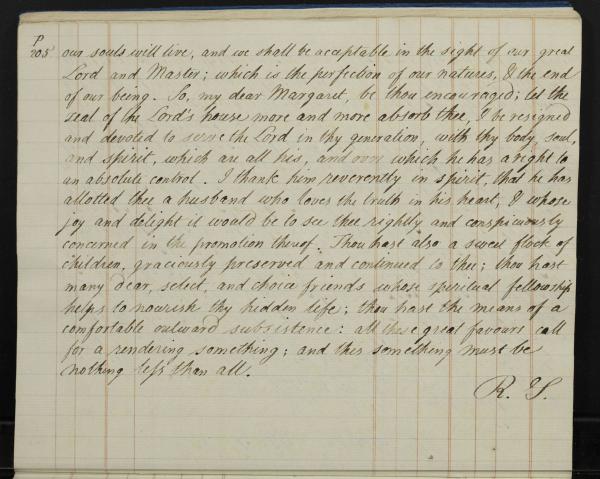 P
205
our souls will live, and we shall be acceptable in the sight of our great
Lord and Master; which is the perfection of our natures, & the end
of our being. So, my dear Margaret, be thou encouraged; let the
zeal of the Lord's house more and more absorb thee, & be resigned
and devoted to serve the Lord in thy generation, with thy body, soul,
and spirit, which are all his, and over which he has a right to
an absolute control. I thank him reverently in spirit, that he has
allotted thee a husband who loves the truth in his heart, & whose
joy and delight it would be to see thee rightly and conspicuously
concerned in the promotion thereof. Thou hast also a sweet flock of
children, graciously preserved and continued to thee; thou hast
many dear, select, and choice friends whose spiritual fellowship
helps to nourish thy hidden life; thou hast the means of a
comfortable outward subsistence: all these great favours call
for a rendering something; and this something must be
nothing less than all.
R. S.